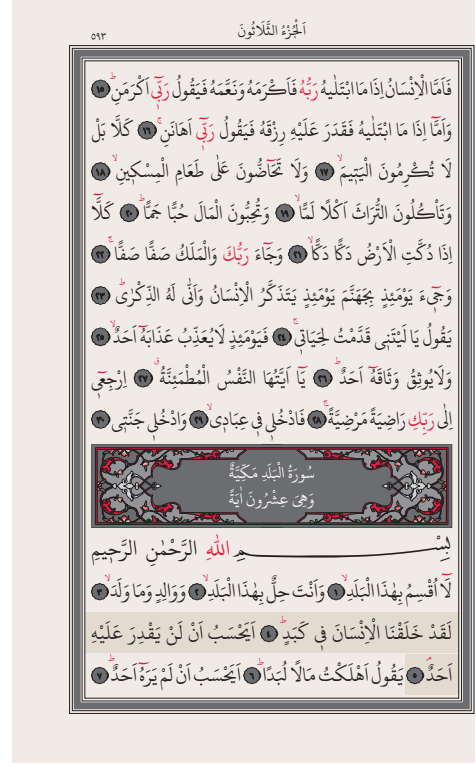 اَلْجُزْءُ الثَّلَاثُونَ
٥٩٣
فَاَمَّا الْاِنْسَانُ اِذَا مَا ابْتَلٰيهُ رَبُّهُ فَاَكْرَمَهُ وَنَعَّمَهُ فَيَقُولُ رَبّٖٓي اَكْرَمَنِؕ ١٥
وَاَمَّٓا اِذَا مَا ابْتَلٰيهُ فَقَدَرَ عَلَيْهِ رِزْقَهُ فَيَقُولُ رَبّٖٓي اَهَانَنِۚ ١٦ كَلَّا بَلْ
لَا تُكْرِمُونَ الْيَتٖيمَۙ ١٧ وَلَا تَحَٓاضُّونَ عَلٰى طَعَامِ الْمِسْكٖينِۙ ١٨
وَتَأْكُلُونَ التُّرَاثَ اَكْلًا لَمًّاۙ ١٩ وَتُحِبُّونَ الْمَالَ حُبًّا جَمًّاؕ ٢٠ كَلَّٓا
اِذَا دُكَّتِ الْاَرْضُ دَكًّا دَكًّاۙ ٢١ وَجَٓاءَ رَبُّكَ وَالْمَلَكُ صَفًّا صَفًّاۚ ٢٢
وَجٖٓيءَ يَوْمَئِذٍ بِجَهَنَّمَ يَوْمَئِذٍ يَتَذَكَّرُ الْاِنْسَانُ وَاَنّٰى لَهُ الذِّكْرٰىؕ ٢٣
يَقُولُ يَا لَيْتَنٖي قَدَّمْتُ لِحَيَاتٖيۚ ٢٤ فَيَوْمَئِذٍ لَا يُعَذِّبُ عَذَابَهُٓ اَحَدٌۙ ٢٥
وَلَا يُوثِقُ وَثَاقَهُٓ اَحَدٌؕ ٢٦ يَٓا اَيَّتُهَا النَّفْسُ الْمُطْمَئِنَّةُۗ ٢٧ اِرْجِعٖٓي
اِلٰى رَبِّكِ رَاضِيَةً مَرْضِيَّةًۚ ٢٨ فَادْخُلٖي فٖي عِبَادٖيۙ ٢٩ وَادْخُلٖي جَنَّتٖي ٣٠
سُورَةُ الْبَلَدِ مَكِّيَّةٌ
وَهِيَ عِشْرُونَ اٰيَةً
بِسْمِ اللّٰهِ الرَّحْمٰنِ الرَّحٖيمِ
لَٓا اُقْسِمُ بِهٰذَا الْبَلَدِۙ ١ وَاَنْتَ حِلٌّ بِهٰذَا الْبَلَدِۙ ٢ وَوَالِدٍ وَمَا وَلَدَۙ ٣
لَقَدْ خَلَقْنَا الْاِنْسَانَ فٖي كَبَدٍؕ ٤ اَيَحْسَبُ اَنْ لَنْ يَقْدِرَ عَلَيْهِ
اَحَدٌۘ ٥ يَقُولُ اَهْلَكْتُ مَالًا لُبَدًاؕ ٦ اَيَحْسَبُ اَنْ لَمْ يَرَهُٓ اَحَدٌؕ ٧